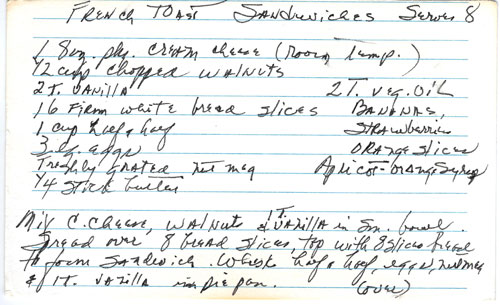 FRENCH TOAST SANDWICHES Serves 8
1 8oz. pkg. CREAM Cheese (Room Temp.)
1/2 cup chopped WALNUTS
2 T. VANILLA 2 T. veg. OIL
16 Firm white bread slices BANANAS,
1 cup half & half STRAWberries
3 eggs ORANGE Slices
Freshly grated nutmeg Apricot-ORANGE Syrup
1/4 Stick butter
Mix C. Cheese, WALNUTS & 1 T. VANILLA in Sm. bowl.
Spread over 8 bread slices, Top with 8 slices bread
to form SANDwich. Whisk half & half, eggs, nutmeg
& 1 T. VANILLA in pie pan. (over)